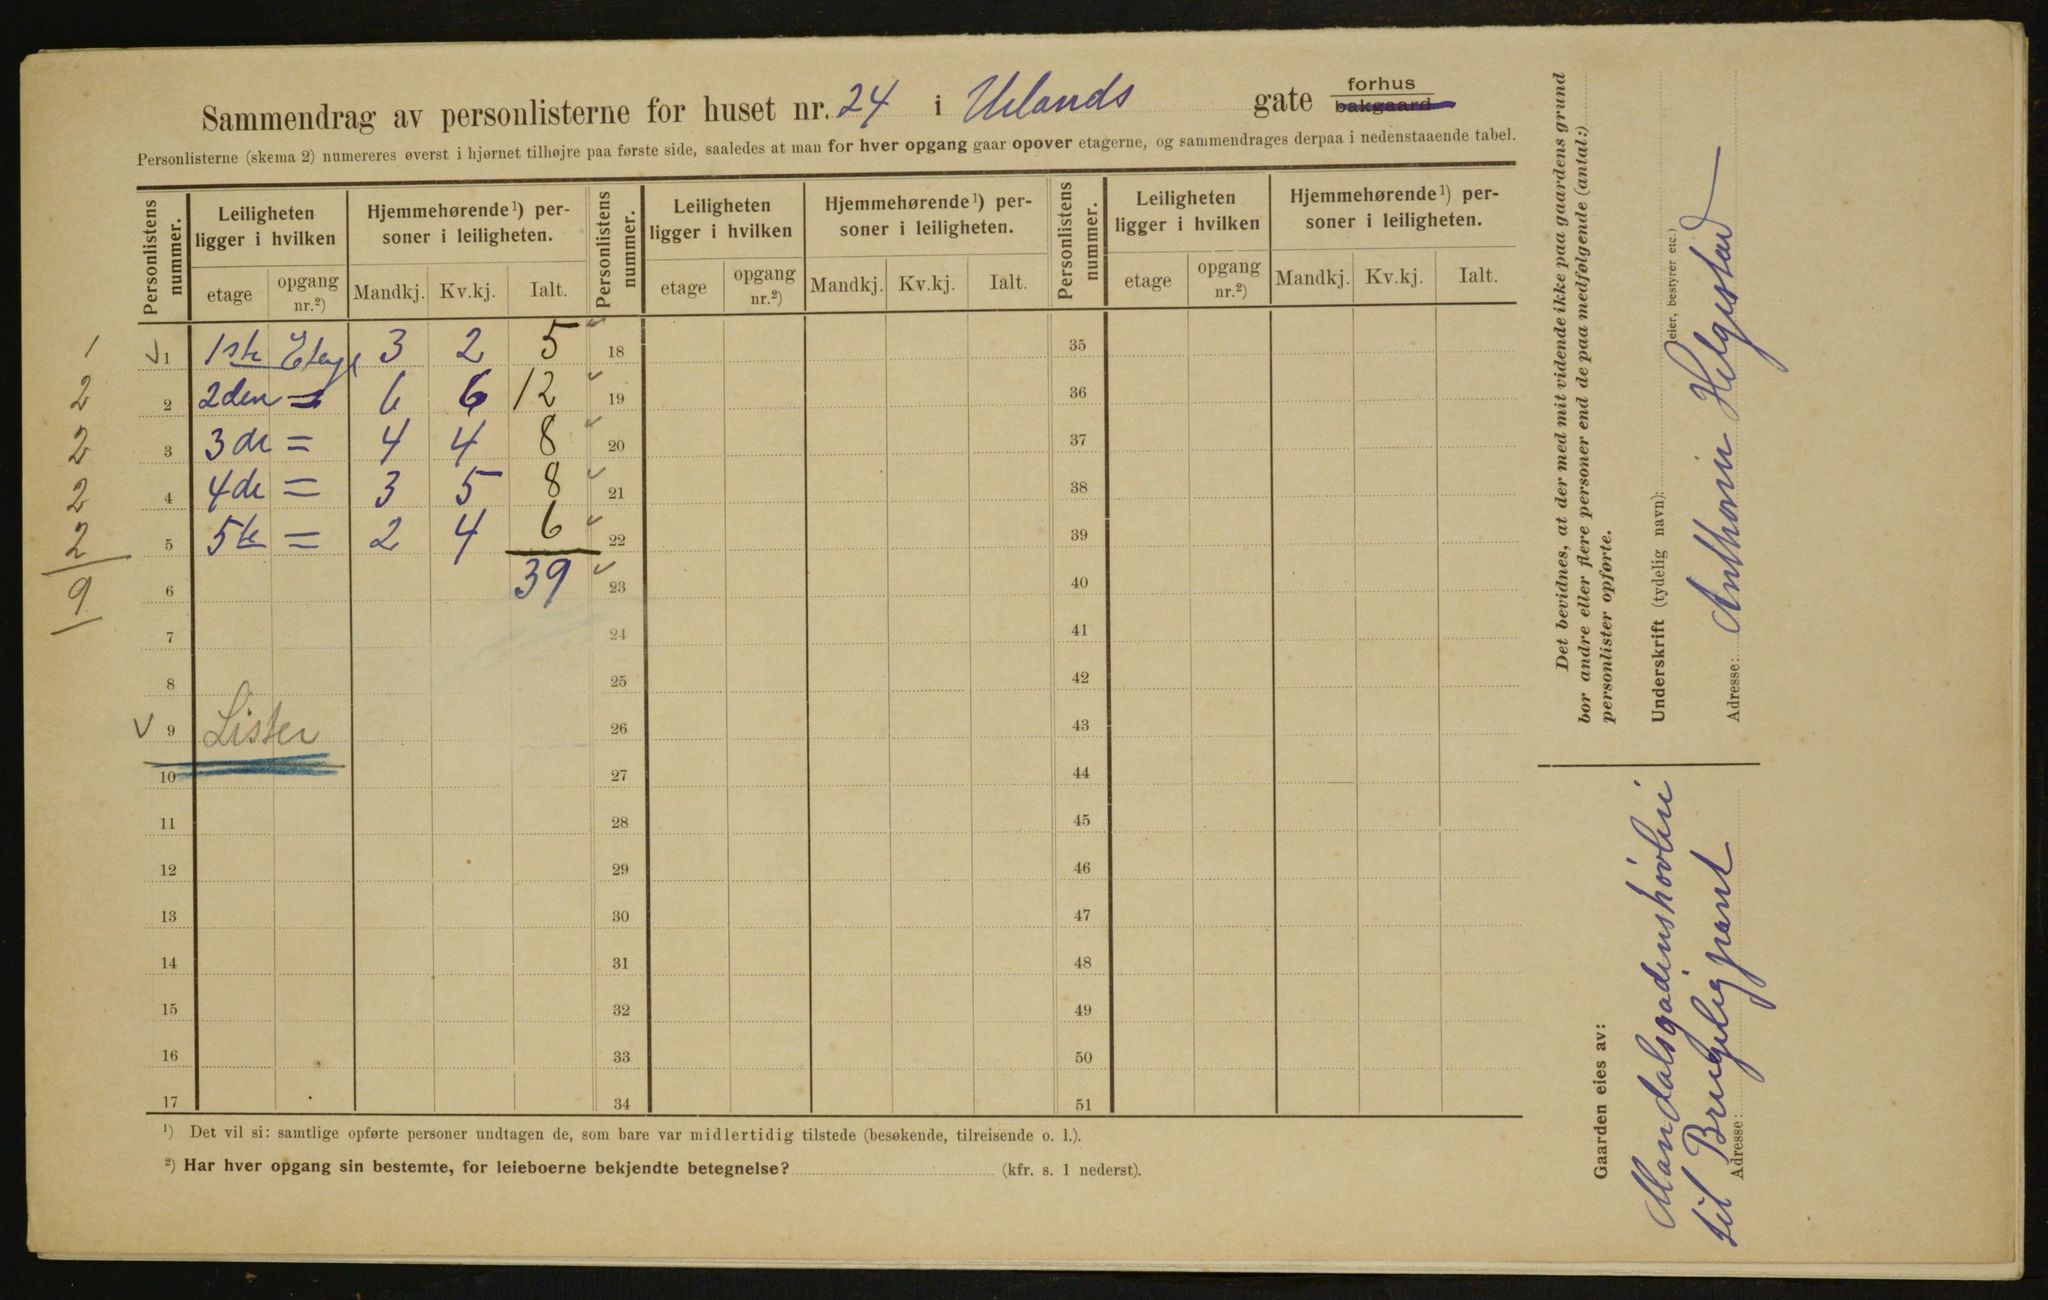 Sammendrag av personlisterne for huset nr. 24 i Uelands gate forhus
bakgaard
Personlisterne (skema 2) numereres øverst i hjørnet tilhøjre paa første side, saaledes at man for hver opgang gaar opover etagerne, og sammendrages derpaa i nedenstaaende tabel.
Personlistens nummer. Leiligheten ligger i hvilken Hjemmehørende ¹) personer i leiligheten. Personlistens nummer. Leiligheten ligger i hvilken Hjemmehørende ¹) personer i leiligheten. Personlistens nummer. Leiligheten ligger i hvilken Hjemmehørende ¹) personer i leiligheten.
etage opgang nr.²) Mandkj. Kv.kj. Ialt. etage opgang nr.²) Mandkj. Kv.kj. Ialt. etage opgang nr.²) Mandkj. Kv.kj. Ialt.
1 1 1ste Etage 3 2 5 18 35
2 2 2den = 6 6 12 19 36
2 3 3de = 4 4 8 20 37
2 4 4de = 3 5 8 21 38
2 5 5te = 2 4 6 22 39
9 6 39 23 40
7 24 41
8 25 42
9 Lister 26 43
10 27 44
11 28 45
12 29 46
13 30 47
14 31 48
15 32 49
16 33 50
17 34 51
¹) Det vil si: samtlige opførte personer undtagen de, som bare var midlertidig tilstede (besøkende, tilreisende o. l.).
²) Har hver opgang sin bestemte, for leieboerne bekjendte betegnelse? (kfr. s. 1 nederst).
Det bevidnes, at der med mit vidende ikke paa gaardens grund
bor andre eller flere personer end de paa medfølgende (antal:)
personlister opførte.
Underskrift (tydelig navn):
(eier, bestyrer etc.)
Anthonie Helgestad
Adresse:
Gaarden eies av:
Mandalsgadens
til
Adresse: